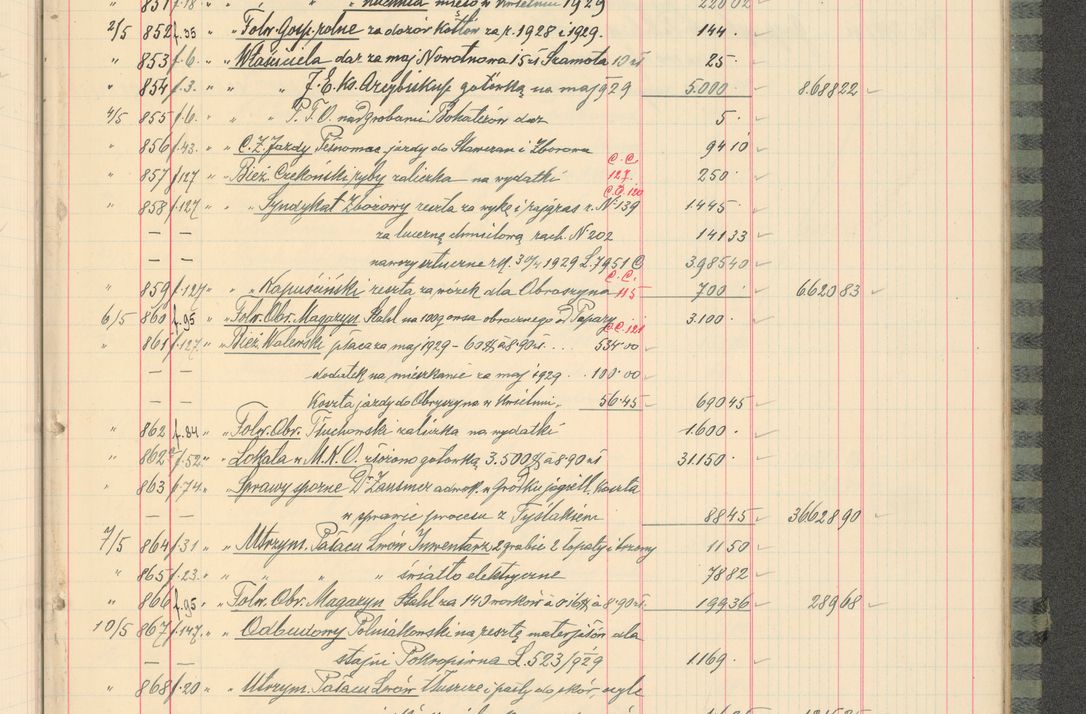 " 851 f.18 " " " " Kuchnia mięso w kwietniu 1929 22002
2/5 852 f.35 " " Folw. Gosp. rolne za dozór kotłów za r. 1928 i 1929. 144.
" 853 f.6. " " Właściciela dar za maj Nowotnowa 15 zł Szamota 10 zł 25.
" 854 f.3. " " " J. E. Ks. Arcybiskup gotówką na maj 929 5.000. 8.68822
4/5 855 f.6. " " " P.T.O. nad grobami Bohaterów dar 5.
" 856 f.43. " " C.Z. Jazdy jazdy do i Zborowa 9410
" 857 f.127 " " Bież. Czekoński ryby zaliczka na wydatki C.C. 127. 250.
" 858 f.127 " " " Syndykat Zbożowy reszta za wykę i rajgras r. N 139 C.C. 120 1445
— — za lucernę chmielową rach. N 202 14133
— — nawozy sztuczne 30/4 1929 L. 7951 C 3.98540
" 859 f.127 " " " Kapuściński reszta za wózek dla Obroszyna C.C. 115 700. 662083
6/5 860 f.95 " " Folw. Obr. Magazyn Stahl na 100 q owsa obrocznego 3.100.
" 861 f.127. " " Bież. Walewski płaca za maj 1929 – 60 $ à 8.90 zł. ... 534.00 C.C. 121
— — dodatek na mieszkanie za maj 1929. . 100.00
— — Koszta jazdy do Obryczyna w kwietniu. 56.45 69045
" 862 f.84 " " Folw. Obr. Tłuchowski zaliczka na wydatki 1.600.
" 862a f.52. " " Lokata w M.K.O. złożono gotówką 3.500 $ à 8.90 zł 31.150.
" 863 f.74. " " Sprawy sporne Dr Zausmer adwok. w Gródku jagiell. koszta
— — w sprawie procesu z Tyślakiem 8845 3662890
7/5 864 f.31 " " Utrzym. Pałacu Lwów Inwentarz 2 grabie 2 łopaty i brzozy 1150
" 865 f.23. " " " " światło elektryczne 7882
" 866 f.95 " " Folw. Obr. Magazyn Stahl za 140 worków à 0.16 $ à 8.90 zł. 19936 28968
10/5 867 f.147. " " Odbudowy Polniakowski na resztę materjałów dla
— — stajni Pokropiwna L. 523/929 1169.
" 868 f.20 " " Utrzym. Pałacu Lwów tłuszcze i pasty do skór,